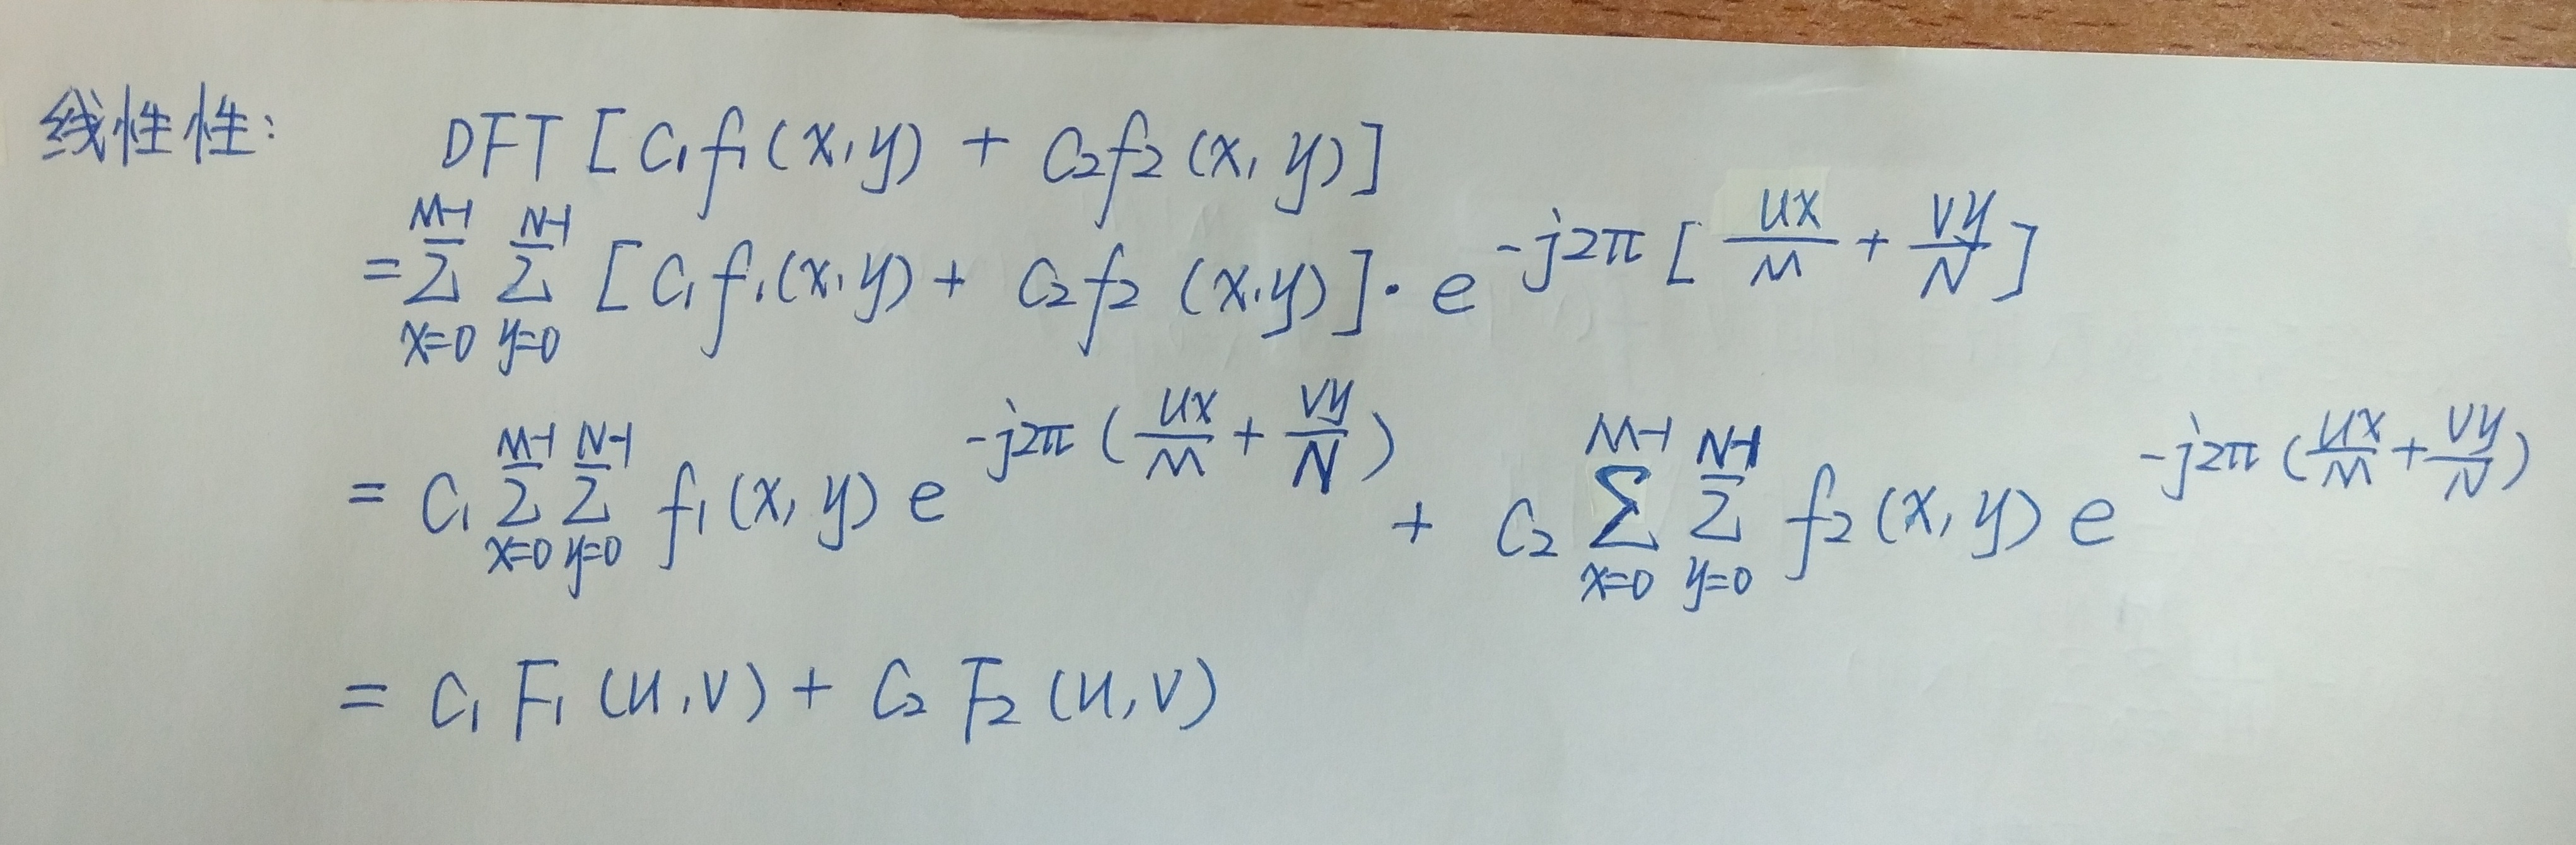 线性性: DFT [C₁f₁(x,y) + C₂f₂(x,y)]
= \sum_{x=0}^{M-1} \sum_{y=0}^{N-1} [C₁f₁(x,y) + C₂f₂(x,y)] · e^{-j2π[\frac{ux}{M} + \frac{vy}{N}]}
= C₁ \sum_{x=0}^{M-1} \sum_{y=0}^{N-1} f₁(x,y) e^{-j2π(\frac{ux}{M} + \frac{vy}{N})} + C₂ \sum_{x=0}^{M-1} \sum_{y=0}^{N-1} f₂(x,y) e^{-j2π(\frac{ux}{M} + \frac{vy}{N})}
= C₁F₁(u,v) + C₂F₂(u,v)